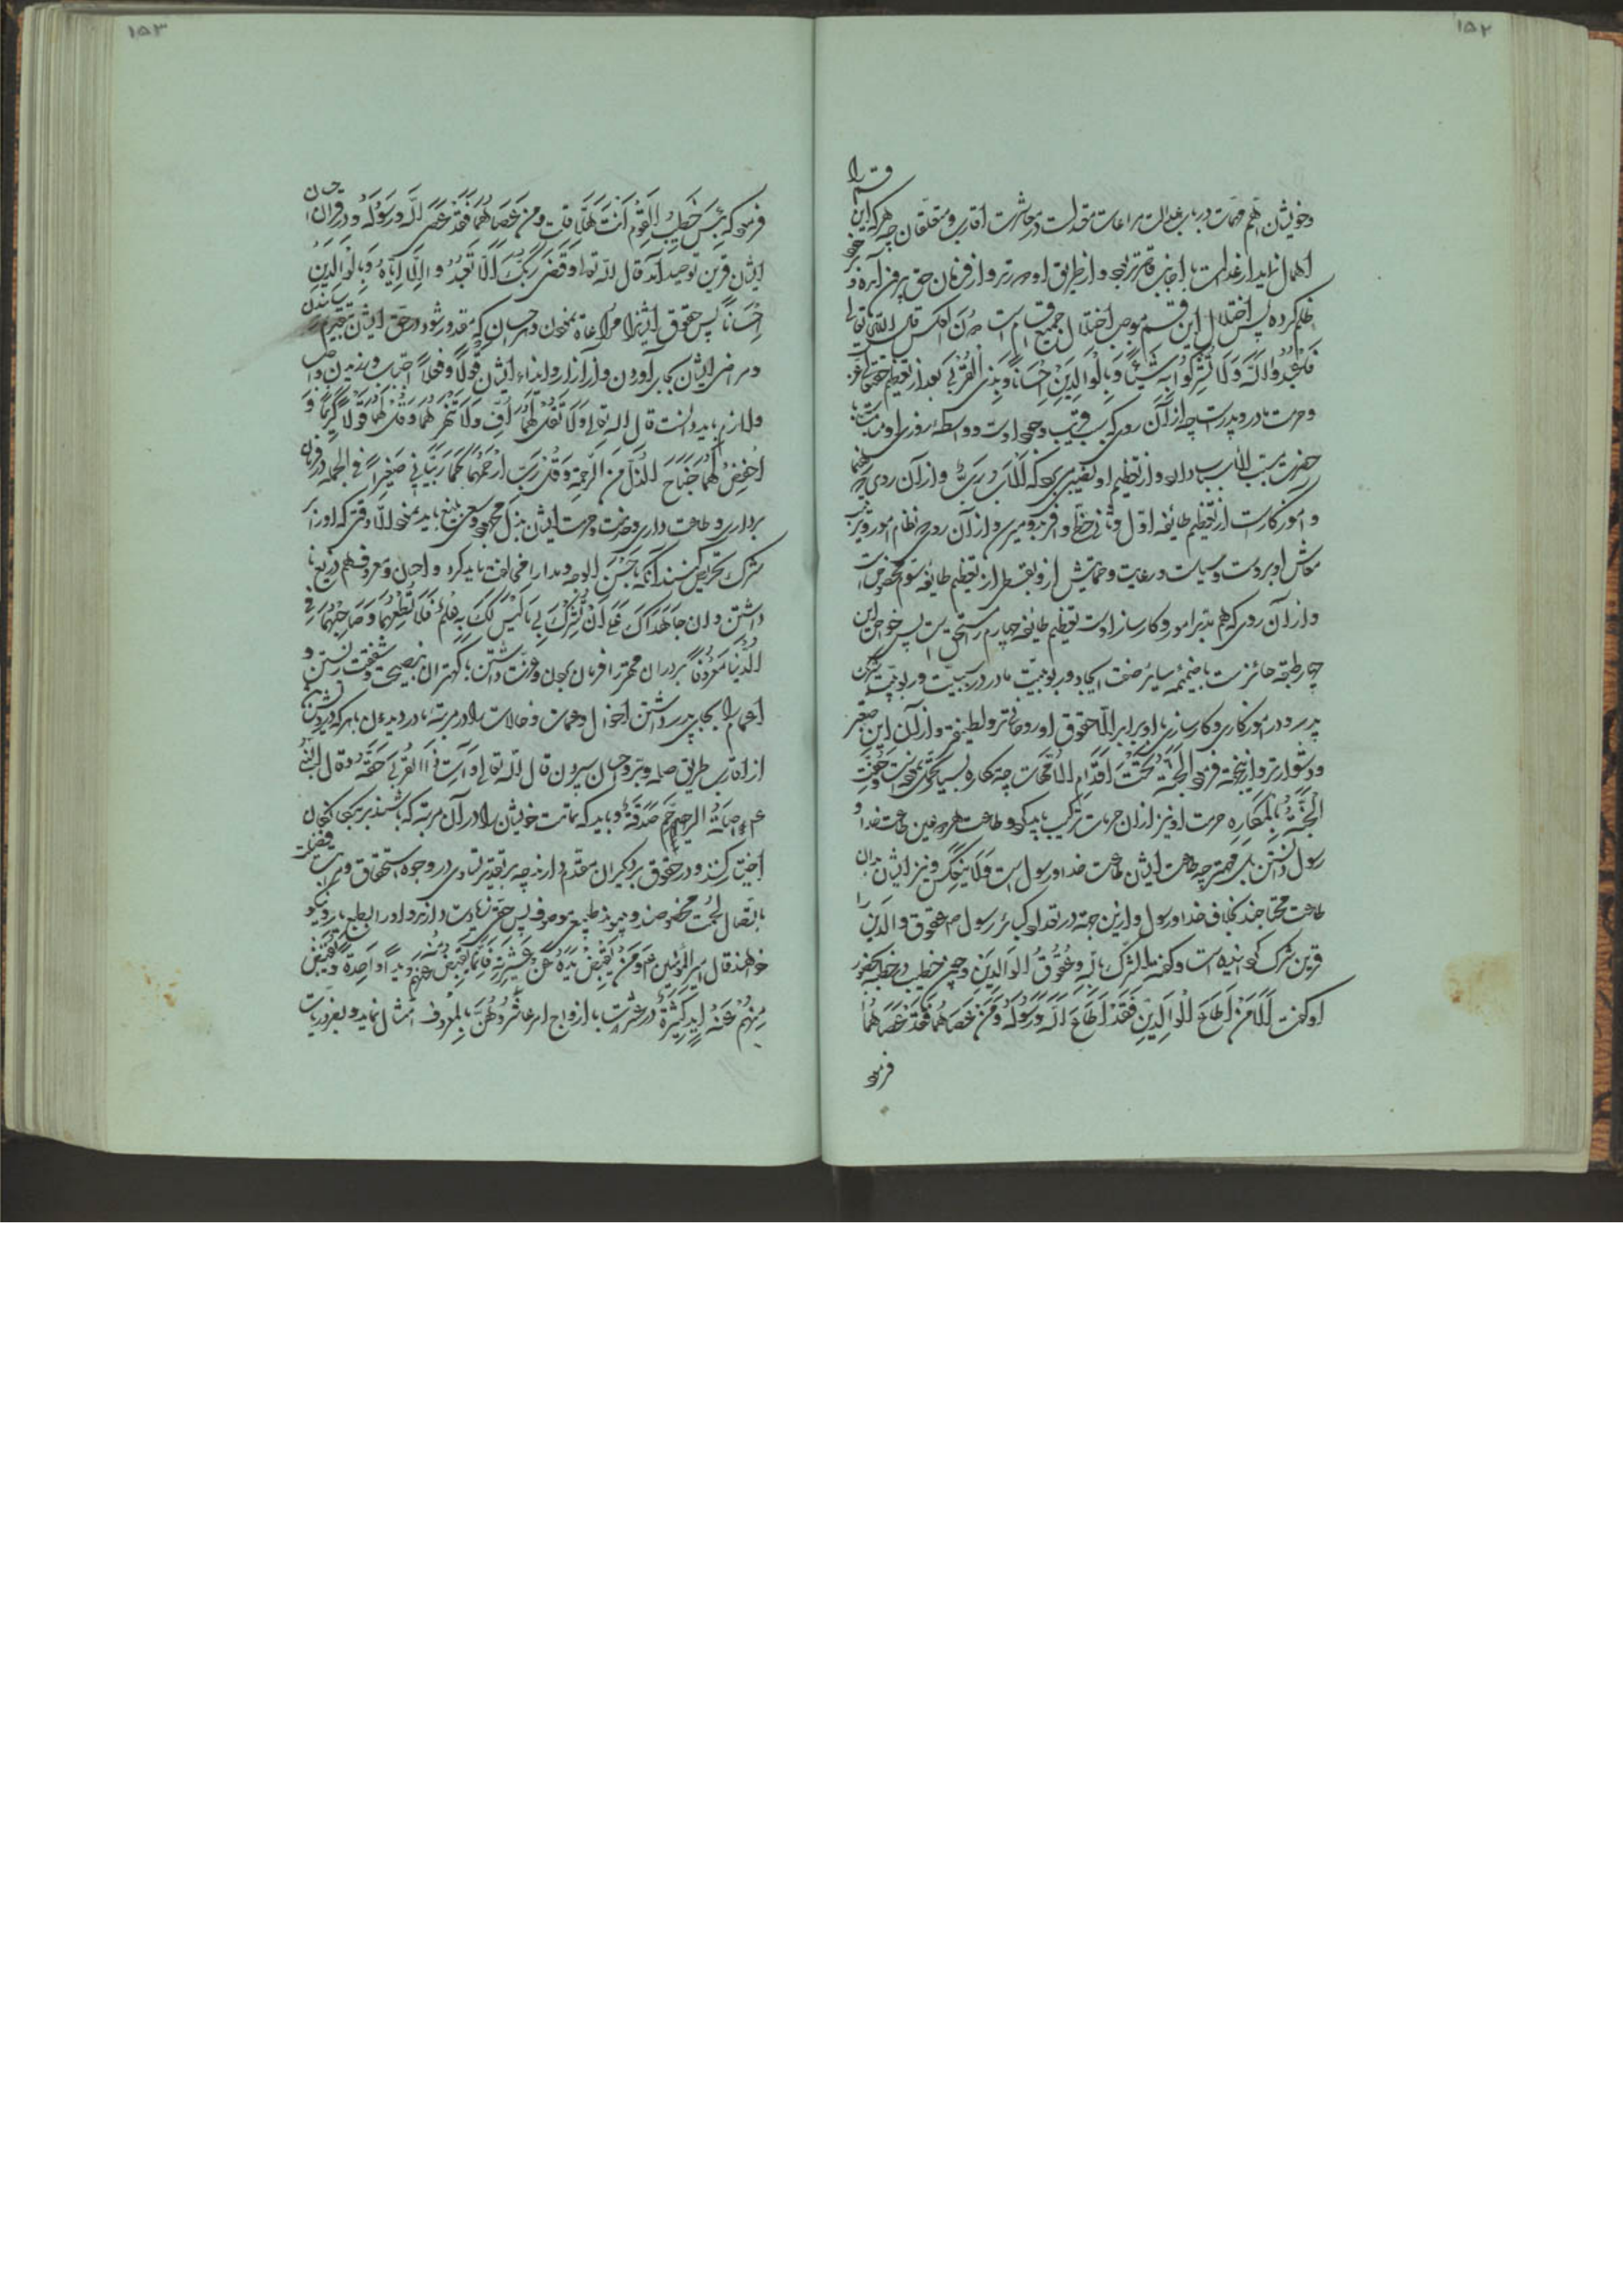 ۱۵۲
قسم را
وخویشان اهم مهمات در باب عدالت مراعات معدلت در معاشرت اقارب و متعلقان چه هر که این
اهمال نماید از عدالت با اجانب قاصرتر باشد و از طریق او دورتر و از فرمان حق بیرون آمده و
ظلم کرده پس اختلال این قسم موجب اختلال جمیع اقسام است دون العکس قال الله تعالی
فَاعْبُدُوا اللَّهَ وَلَا تُشْرِكُوا بِهِ شَيْئًا وَبِالْوَالِدَيْنِ إِحْسَانًا وَبِذِي الْقُرْبَى بعد از تعظیم
وحرمت مادر و پدر است چه از آن روی که سبب قریب وجود اوست و واسطه
حضرت مسبب الاسباب از تعظیم او نصیبی بود که الاب رب و از آن روی
و آموزگارست از تعظیم طایفه اول و ثانی حظی وافر برد و از آن روی که نظام امور و
معاش او بروست و سیاست و رعایت و حمایتش ازو بقسطی از تعظیم طایفه سوم مخصوص است
و از آن روی که هم مدبر امور و کارساز اوست تعظیم طایفه چهارم را مستحق است پس
چهار طبقه حائزست با ضمیمه سایر صفت ایجاد و ربوبیت مادر در سببیت و ربوبیت شریک
پدر و در آموزگاری و کارسازی با او برابر الا حقوق او روحانی‌تر و لطیف‌تر و از آن این
ودشوارتر و از اینجاست فرمود الجَنَّةُ تَحْتَ أَقْدَامِ الْأُمَّهَاتِ چه مکاره بسیار تحمل
الْجَنَّةُ بِالْمَكَارِهِ حرمت او نیز از آن جهات ترکیب باید کرد و طاعت هر دو عین طاعت خدا و
رسول دانستن بلکه مهمتر چه طاعت ایشان طاعت خدا و رسول است وَلَا يَنْعَكِسُ و نیز ایشان بدان
طاعت محتاجند بخلاف خدا و رسول و ازین جهة در تعداد کبائر رسول ص عقوق والدین را
قرین شرک گردانیده است و گفته الشرك بالله وعُقُوقُ الوَالِدَيْنِ و چون خطیب در خطبه بحضور
او گفت أَلَا مَنْ أَطَاعَ الْوَالِدَيْنِ فَقَدْ أَطَاعَ اللَّهَ وَرَسُولَهُ وَمَنْ عَصَاهُمَا فَقَدْ عَصَاهُمَا
فرمود
۱۵۳
فرمود که بِئْسَ خَطِيبُ الْقَوْمِ أَنْتَ هَلَّا قُلْتَ وَمَنْ عَصَاهُمَا فَقَدْ عَصَى اللَّهَ وَرَسُولَهُ و در قرآن احسان
ایشان قرین توحید آمد قال الله تعالی وَقَضَى رَبُّكَ أَلَّا تَعْبُدُوا إِلَّا إِيَّاهُ وَبِالْوَالِدَيْنِ
إِحْسَانًا پس حقوق ایشانرا مراعاة نمودن و هر احسان که مقدور شود در حق ایشان بتقدیم رسانیدن
ومراضی ایشان بجای آوردن و از آزار و ایذاء ایشان قَوْلًا وَفِعْلًا اجتناب ورزیدن واجب
ولازم باید دانست قال الله تعالی وَلَا تَقُلْ لَهُمَا أُفٍّ وَلَا تَنْهَرْهُمَا وَقُلْ لَهُمَا قَوْلًا كَرِيمًا وَ
اخْفِضْ لَهُمَا جَنَاحَ الذُّلِّ مِنَ الرَّحْمَةِ وَقُلْ رَبِّ ارْحَمْهُمَا كَمَا رَبَّيَانِي صَغِيرًا فی الجمله در فرمان
برداری و طاعت داری و خدمت و حرمت ایشان بذل مجهود و سعی بلیغ باید نمود الا وقتی که او را بر
شرک تحریص کنند آنگه بأحسن الوجه و مدارا مخالفت باید کرد و احسان و معروف هم دریغ نا
داشتن وَإِنْ جَاهَدَاكَ عَلَى أَنْ تُشْرِكَ بِي مَا لَيْسَ لَكَ بِهِ عِلْمٌ فَلَا تُطِعْهُمَا وَصَاحِبْهُمَا فِي
الدُّنْيَا مَعْرُوفًا برادران مهتر را فرمان بردن و عزت داشتن با کهتران بنصیحت و شفقت زیستن و
اعمام را بجای پدر داشتن اخوال و عمات و خالات را در مرتبه مادر دیدن با هر که درویش باشد
از اقارب طریق صله و بر و احسان سپردن قال الله تعالی وَآتِ ذَا الْقُرْبَى حَقَّهُ وقال النبی
ع م صِلَةُ الرَّحِمِ صَدَقَةٌ و باید که تمامت خویشان را در آن مرتبه که باشند بر بیگانگان
اختیار کند و در حقوق بر دیگران مقدم دارند چه بر تقدیر تساوی در وجوه استحقاق و فضیلت
باتصال لحمت مخصوصند و بپیوند طبیعی موصوف پس حق زیادت دارند و او را بالطبع نیکو
خواهند قال امیر المؤمنین ع م وَمَنْ يَقْبِضْ يَدَهُ عَنْ عَشِيرَتِهِ فَإِنَّمَا يَقْبِضُ عَنْهُمْ يَدًا وَاحِدَةً وَيُقْبَضُ
مِنْهُمْ عَنْهُ أَيْدٍ كَثِيرَةٌ در معاشرت با ازواج امر عَاشِرُوهُنَّ بِالْمَعْرُوفِ امتثال نماید و بضروریات